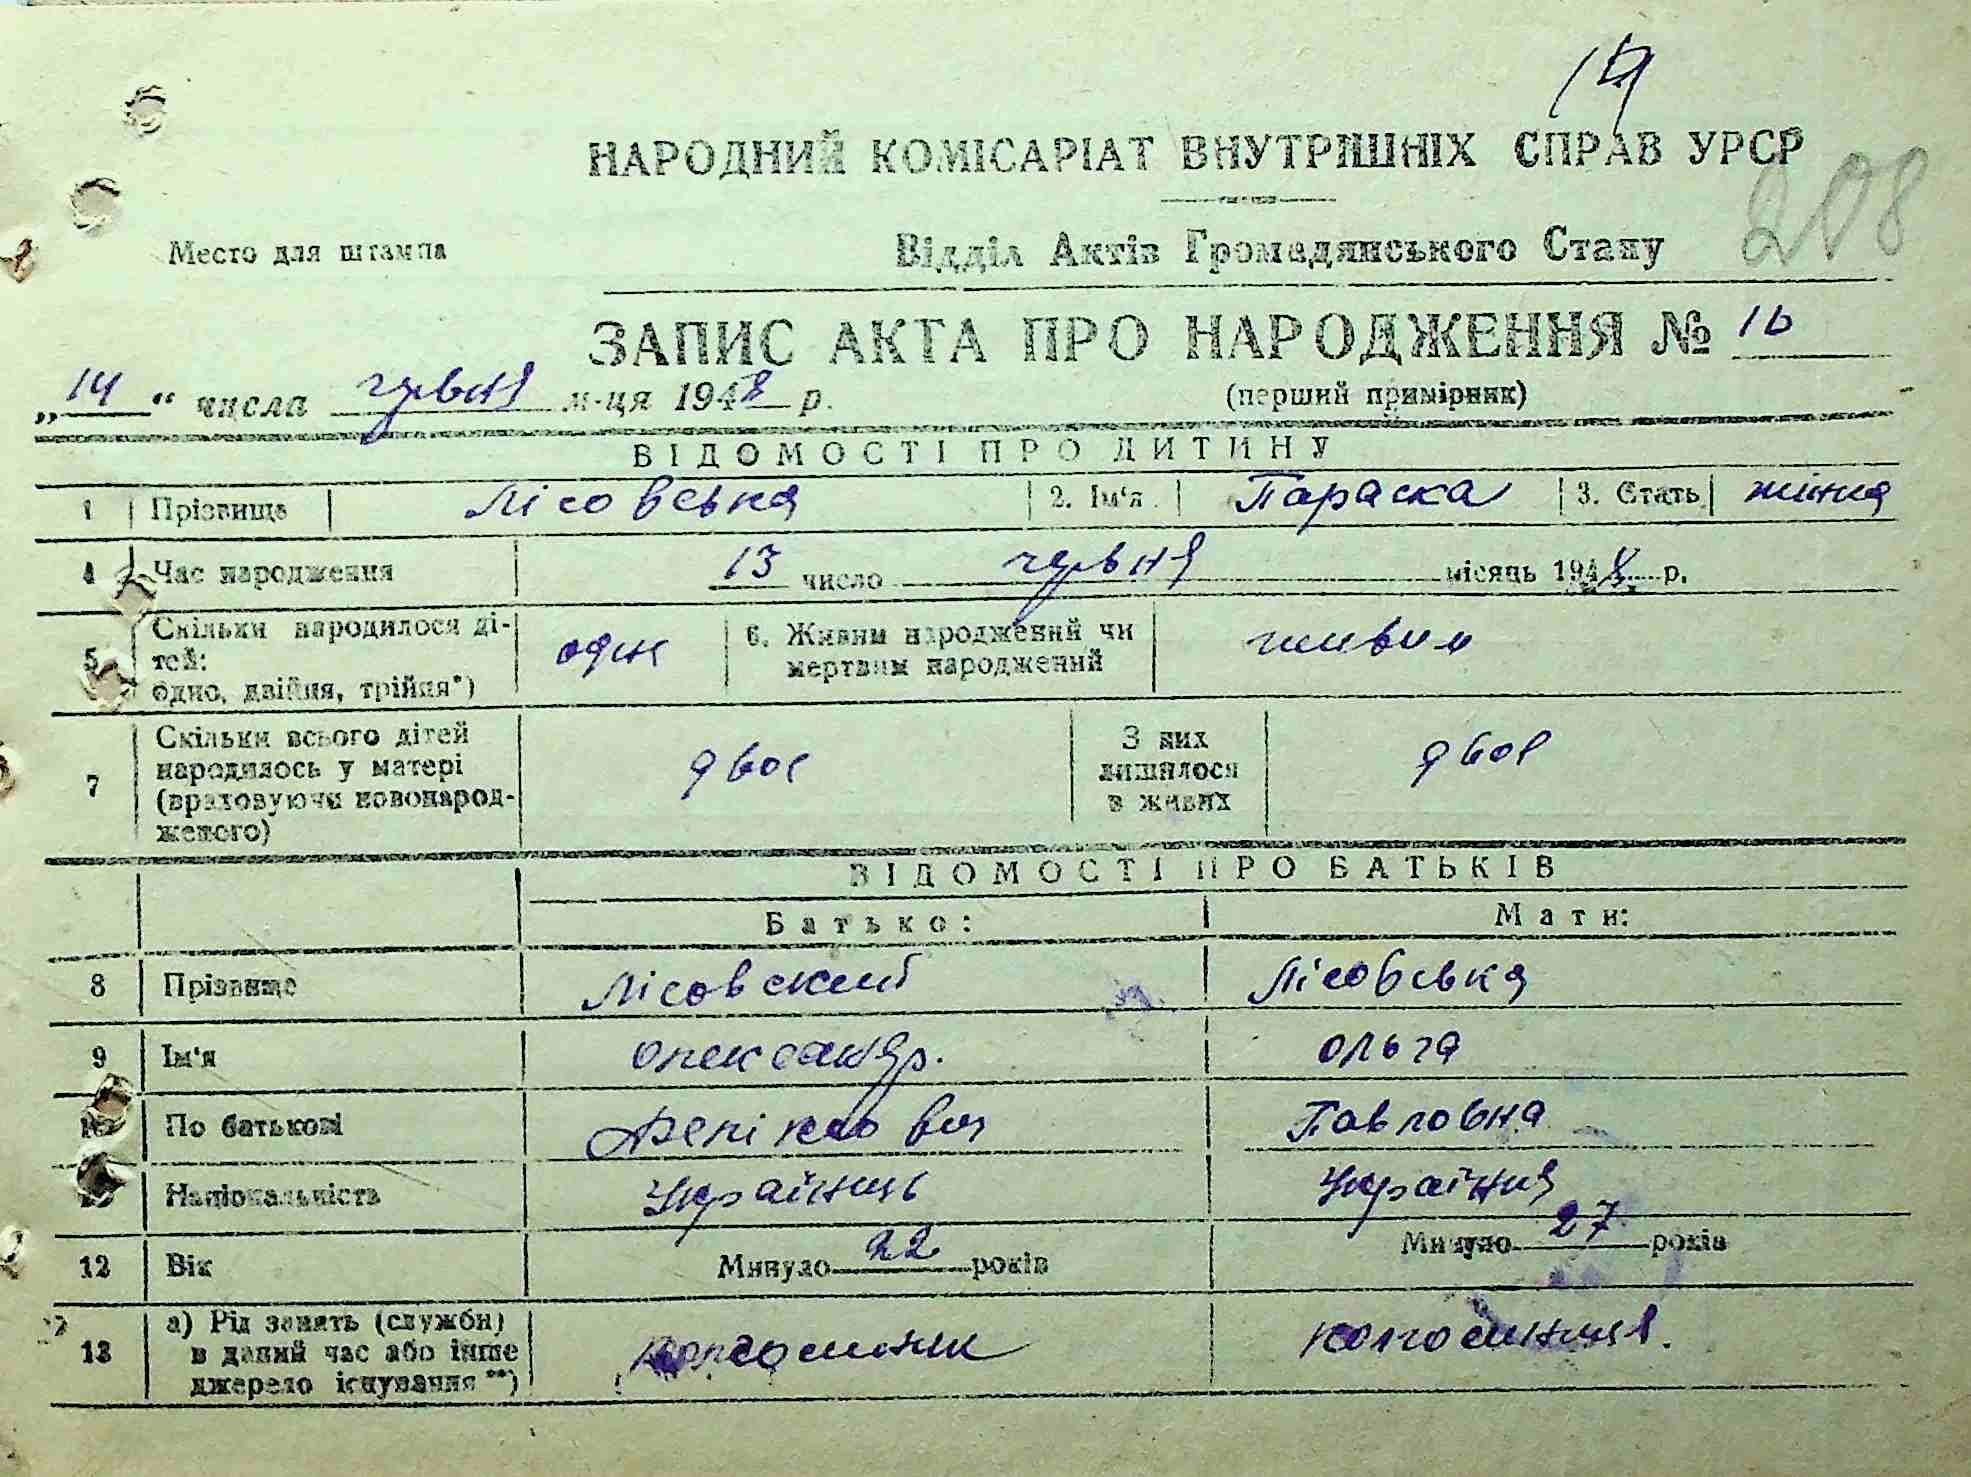 19
НАРОДНИЙ КОМІСАРІАТ ВНУТРІШНІХ СПРАВ УРСР
208
Место для штампа
Відділ Актів Громадянського Стану
ЗАПИС АКТА ПРО НАРОДЖЕННЯ № 16
„14“ числа червня м-ця 1948 р.
(перший примірник)
ВІДОМОСТІ ПРО ДИТИНУ
1 Прізвище Лісовська 2. Ім'я Параска 3. Стать жіноча
4 Час народження 13 число червня місяць 1948 р.
5 Скільки народилося ді-
тей:
одно, двійня, трійня*) одне
6. Живим народжений чи
мертвим народжений живим
7 Скільки всього дітей
народилось у матері
(враховуючи новонарод-
женого) двоє
З них
лишилося
в живих двоє
ВІДОМОСТІ ПРО БАТЬКІВ
Батько: Мати:
8 Прізвище Лісовский Лісовська
9 Ім'я Олександр. Ольга
10 По батькові Павловна
Національність Українець Українка
12 Вік Минуло 22 років Минуло 27 років
13 а) Рід занять (служби)
в даний час або інше
джерело існування**) колгоспник колгоспниця.